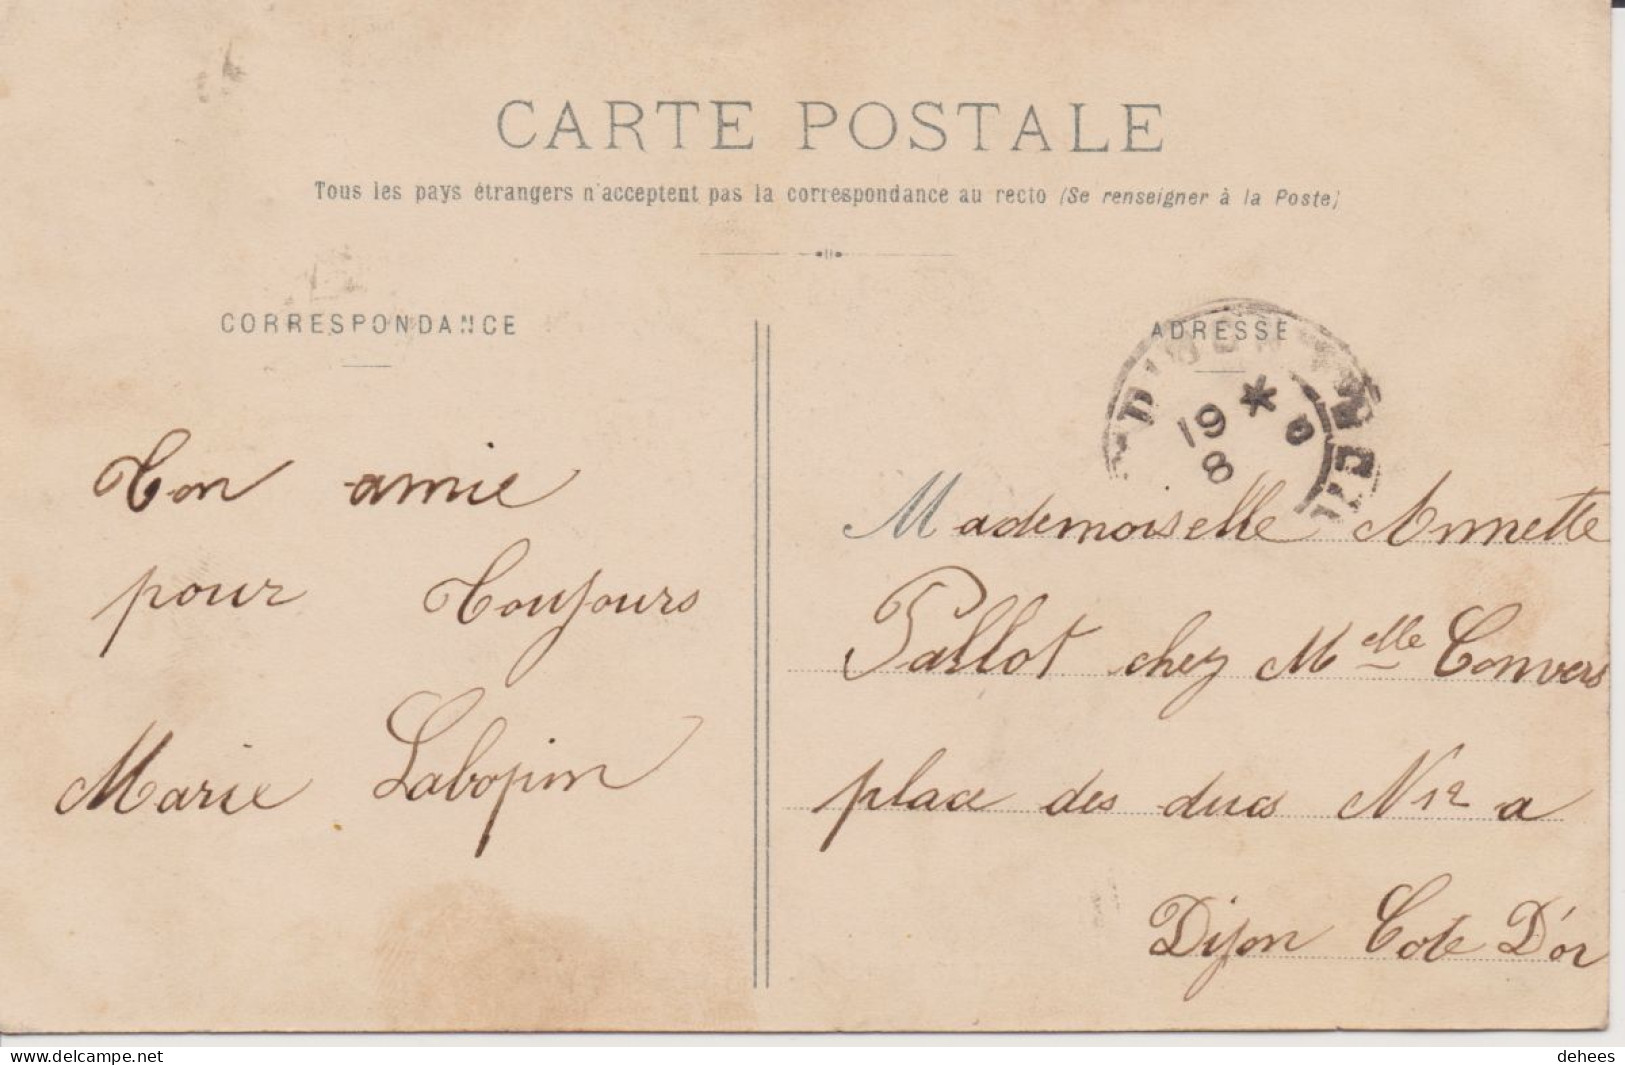 CARTE POSTALE
Tous les pays étrangers n'acceptent pas la correspondance au recto (Se renseigner à la Poste)
CORRESPONDANCE
Ton amie
pour Toujours
Marie Labopin
ADRESSE
19 * 8
8
Mademoiselle Annette
Pallot chez Melle Convers
place des ducs N 12 a
Dijon Cote D'or
delcampe.net
dehees